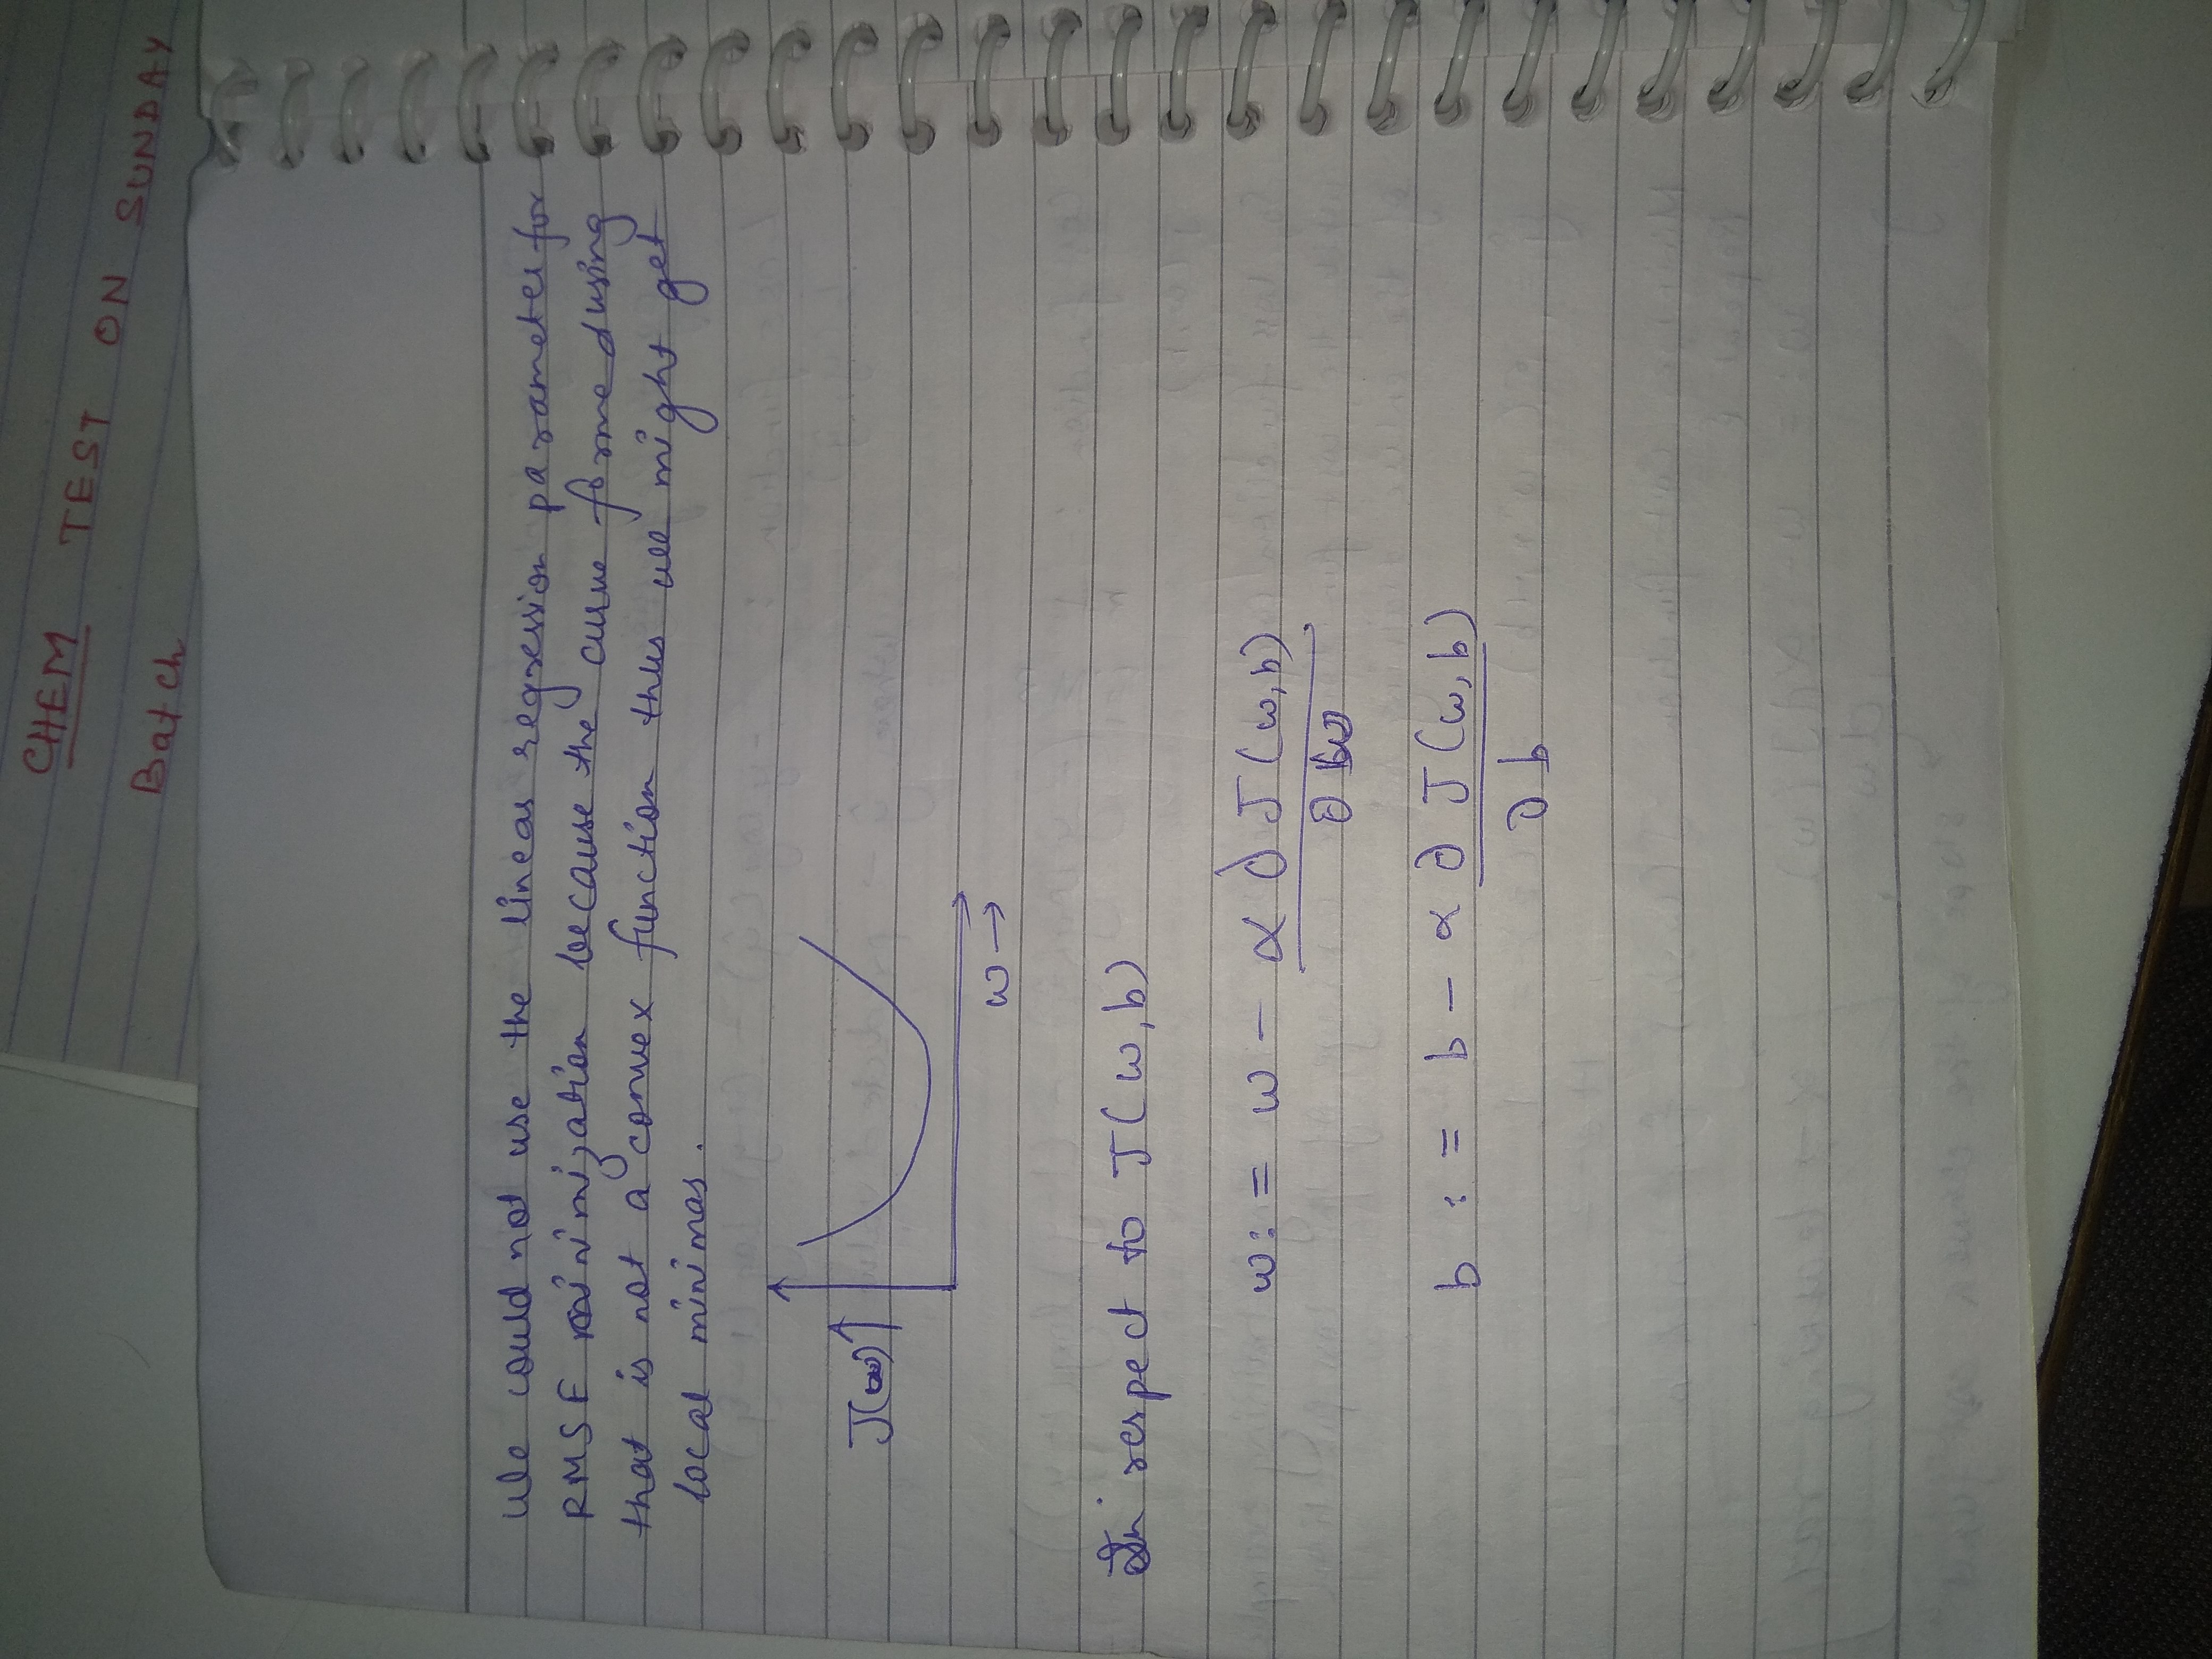 CHEM TEST ON SUNDAY
Batch
We could not use the linear regression parameter for
RMSE minimization because the curve formed using
that is not a convex function thus we might get
local minimas.
J(w)
w →
In respect to J(w,b)
w := w - α ∂J(w,b)
∂w
b := b - α ∂J(w,b)
∂b